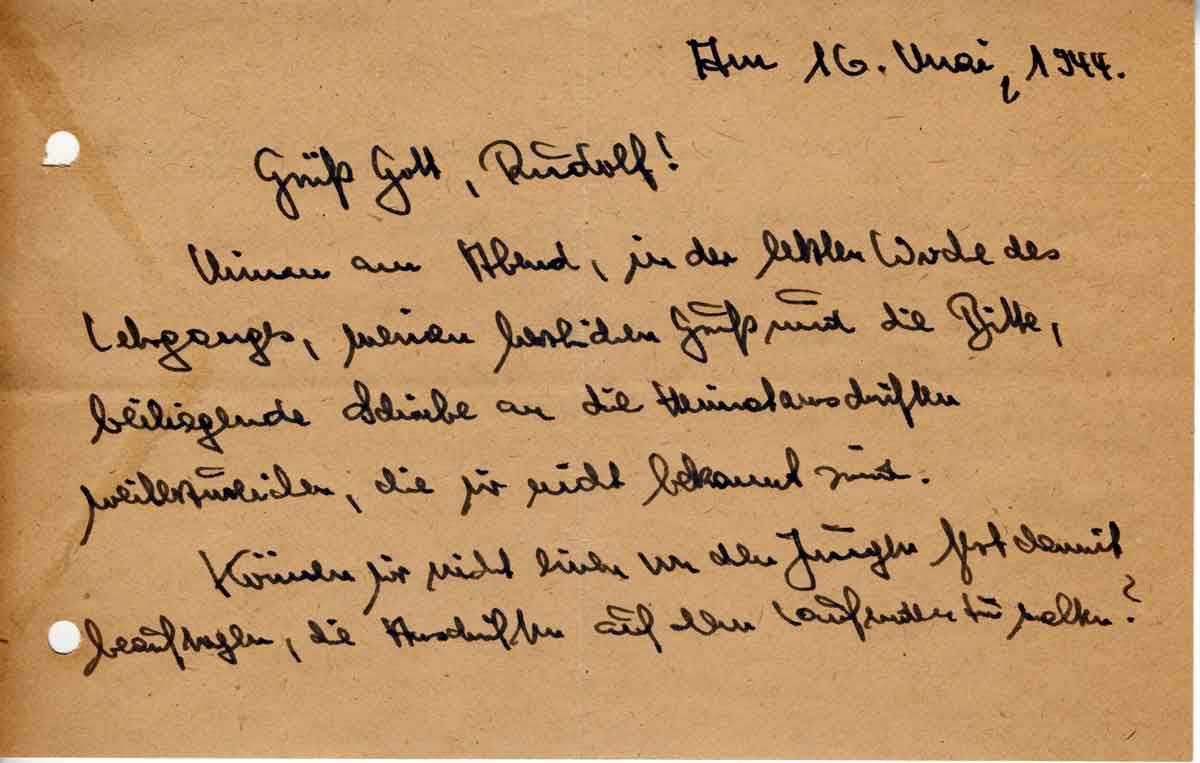 Am 16. Mai, 1944.
Grüß Gott, Rudolf!
am Abend, in der letzten Woche des
Lehrgangs, meinen herzlichen Gruß und die Bitte,
beiliegende an die Heimatanschriften
weiterzuleiten, die mir nicht bekannt sind.
Können wir nicht einen von den Jungen dort damit
beauftragen, die Anschriften auf dem Laufenden zu halten?